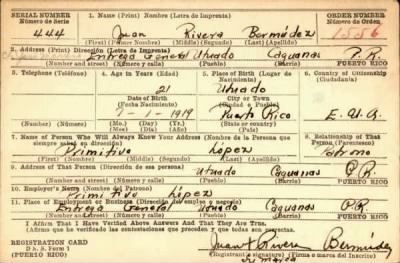 SERIAL NUMBER 1. Name (Print) (Nombre (Letra de Imprenta) ORDER NUMBER
Número de Serie Número de Orden
444 Juan Rivera Bermúdez 1556
(First) (Primer Nombre) (Middle) (Segundo) (Last) (Apellido)
2. Address (Print) (Dirección) (Letra de Imprenta)
Entrega General Utuado Caguanas P.R.
(Number and street) (Número y calle) (Town) (Pueblo) (Barrio) PUERTO RICO
3. Telephone (Teléfono) 4. Age in Years (Edad) 5. Place of Birth (Lugar de Nacimiento) 6. Country of Citizenship (Ciudadanía)
21 Utuado
Date of Birth (Fecha Nacimiento) City or Town (Ciudad o Pueblo)
- - 1919 Puerto Rico E.U.A.
(Mo.) (Day) (Yr.) (State or country)
(Mes) (Día) (Año) (Estado o país)
7. Name of Person Who Will Always Know Your Address (Nombre de la Persona que siempre sabrá su dirección) 8. Relationship of That Person (Parentesco)
Primitivo López Patrono
(First) (Nombre) (Middle) (Segundo) (Last) (Apellido)
9. Address of That Person (Dirección de esa persona)
Utuado Caguanas P.R.
(Number and street) (Número y calle) (Town) (Pueblo) (Barrio) PUERTO RICO
10. Employer's Name (Nombre del Patrono)
Primitivo López
11. Place of Employment or Business (Dirección del empleo o negocio)
Entrega General Utuado Caguanas P.R.
(Number and street) (Número y calle) (Town) (Pueblo) (Barrio) PUERTO RICO
I Affirm That I Have Verified Above Answers And That They Are True.
(Afirmo que he verificado las contestaciones que anteceden y que son verdad)
REGISTRATION CARD
D. S. S. Form 1
(PUERTO RICO)
Juan Rivera Bermúdez
(Registrant's signature) (Firma o marca del Inscrito)
su marca